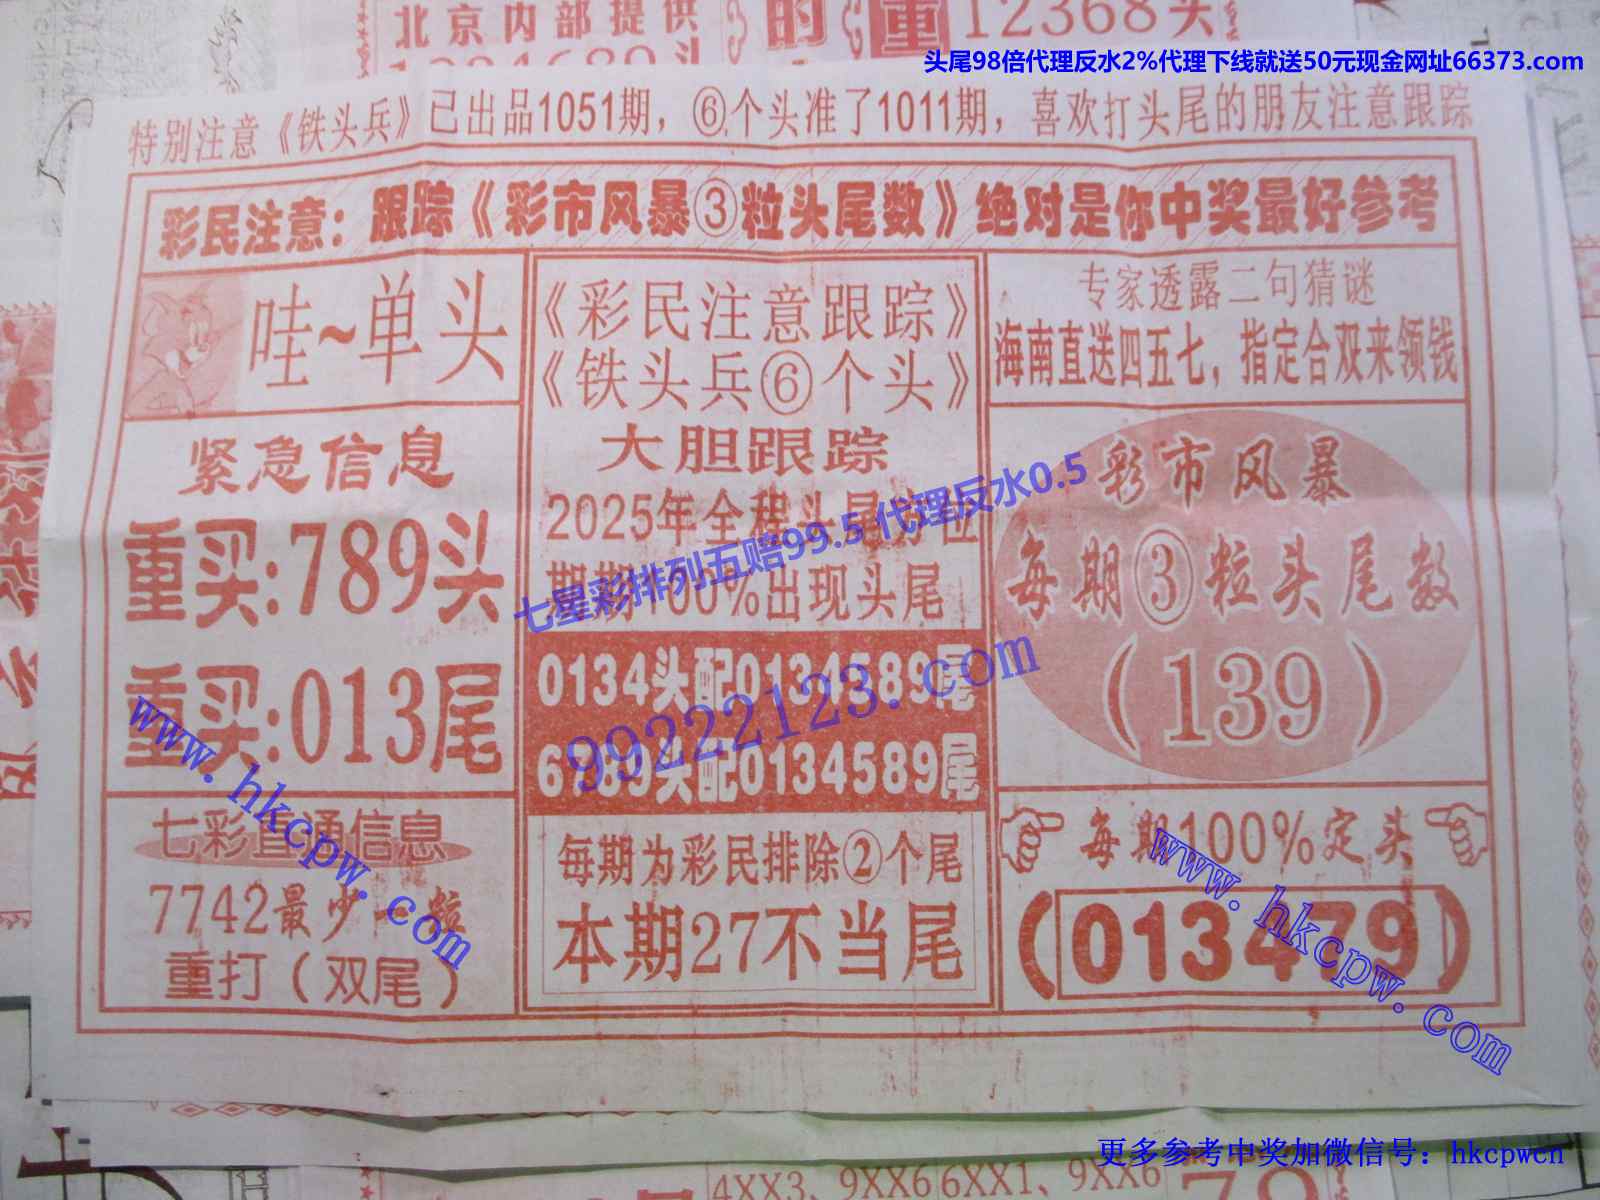 北京内部提供
的
重
12368头
头尾98倍代理反水2%代理下线就送50元现金网址66373.com
特别注意《铁头兵》已出品1051期，⑥个头准了1011期，喜欢打头尾的朋友注意跟踪
彩民注意：跟踪《彩市风暴③粒头尾数》绝对是你中奖最好参考
哇~单头
紧急信息
重买:789头
重买:013尾
七彩直通信息
7742最少一粒
重打（双尾）
《彩民注意跟踪》
《铁头兵⑥个头》
大胆跟踪
2025年全程头尾方位
期期100%出现头尾
0134头配0134589尾
6789头配0134589尾
每期为彩民排除②个尾
本期27不当尾
专家透露二句猜谜
海南直送四五七，指定合双来领钱
彩市风暴
每期③粒头尾数
（139）
每期100%定头
（013479）
七星彩排列五赔99.5 代理反水0.5
99222123.com
www.hkcpw.com
www.hkcpw.com
更多参考中奖加微信号：hkcpwcn
4XX3、9XX6 6XX1、9XX6